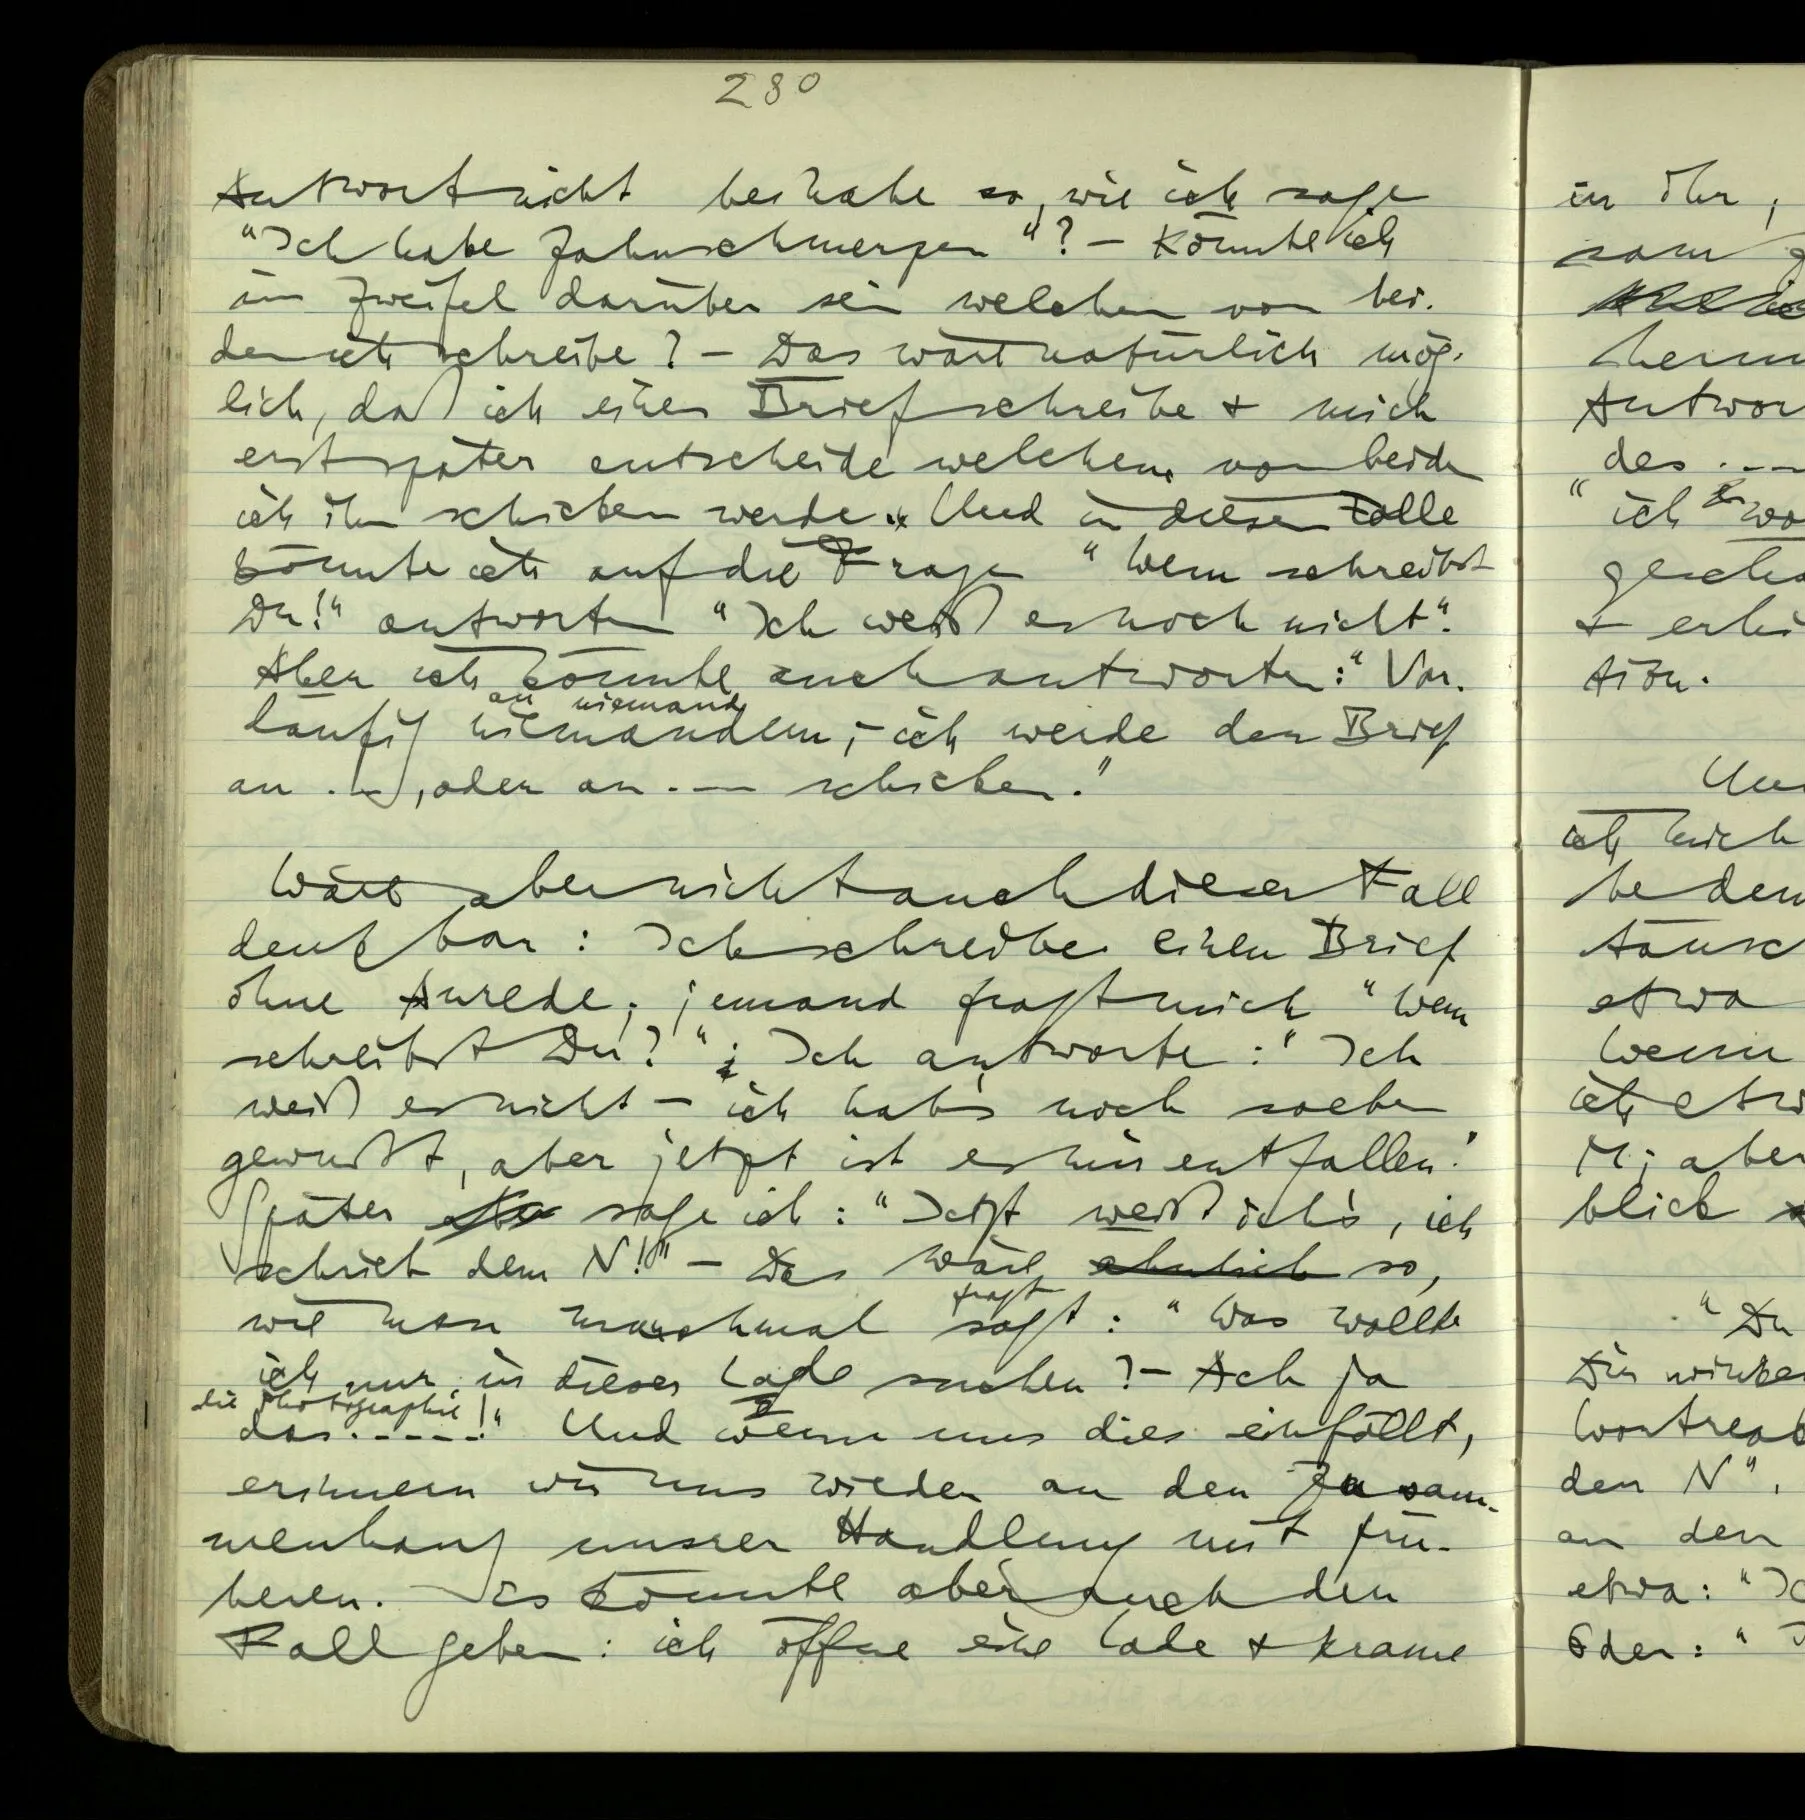 280
Antwort nicht beinahe so, wie ich sage
"Ich habe Zahnschmerzen"? – Könnte ich
im Zweifel darüber sein welchem von bei-
den ich schreibe? – Das wäre natürlich mög-
lich, daß ich einen Brief schreibe & mich
erst später entscheide welchem von beiden
ich ihn schicken werde. Und in diesem Falle
könnte ich auf die Frage "Wem schreibst
Du?" antworten "Ich weiß es noch nicht".
Aber ich könnte auch antworten: "Vor-
an niemand
läufig niemandem; – ich werde den Brief
an ..., oder an ... schicken."
Wäre aber nicht auch dieser Fall
denkbar: Ich schreibe einen Brief
ohne Anrede; jemand fragt mich "Wem
schreibst Du?"; Ich antworte: "Ich
weiß es nicht – ich hab's noch soeben
gewußt, aber jetzt ist es mir entfallen."
Später sage ich: "Jetzt weiß ich's, ich
schrieb dem N!" – Das wäre ähnlich so,
fragt
wie man manchmal sagt: "Was wollte
ich nur in dieser Lade suchen? – Ach ja
die Photographie!"
das .....!" Und wenn uns dies einfällt,
erinnern wir uns wieder an den Zusam-
menhang unsrer Handlung mit frü-
heren. – Es könnte aber auch den
Fall geben: ich öffne eine Lade & krame
in ihr,
Antwor
des ...
"ich wo
gescha
& erhi
tion.
ich mich
be dem
täusch
etwa
Wenn
ich etw
M; aber
blick
"Du
Dir winke
Wortreak
den N".
an den
etwa: "Ic
Oder: "I